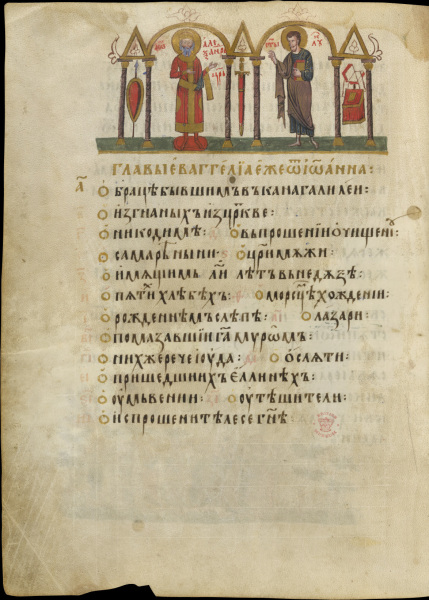 ГЛАВЫ Е҆ВАГГЕЛІА Е҆ЖЕ Ѿ ІѠАННА:
а҃
О бращѣ бывшимъ въ кана галилеи:
О изгнаныхъ из цркве:
О никодимѣ: О въпрошении о очищении
О самарѣныни: О цри мѫжи:
О имѫщимь л҃и лѣтъ въ недѫзѣ:
О пѧти хлѣбѣхъ: О морсцѣ хождении:
О рождениемъ слѣпѣ: О лазари:
О помазавшии г҃а мѵромъ:
О нихже рече іоуда: О ослѧти:
О пришедшихъ еллинѣхъ:
О оумъвении: О оутѣшители:
О испрошении телесе г҃нѣ: